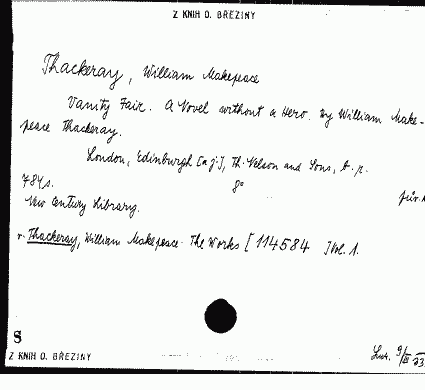 Z KNIH O. BŘEZINY
Thackeray, William Makepeace
Vanity Fair. A Novel without a Hero. By William Make-
peace Thackeray.
London, Edinburgh [a j.], Th. Nelson and Sons, b. r.
784 s. 8°
New Century Library.
Thackeray, William Makepeace: The Works [114584 ] Vol. 1.
S
Z KNIH O. BŘEZINY